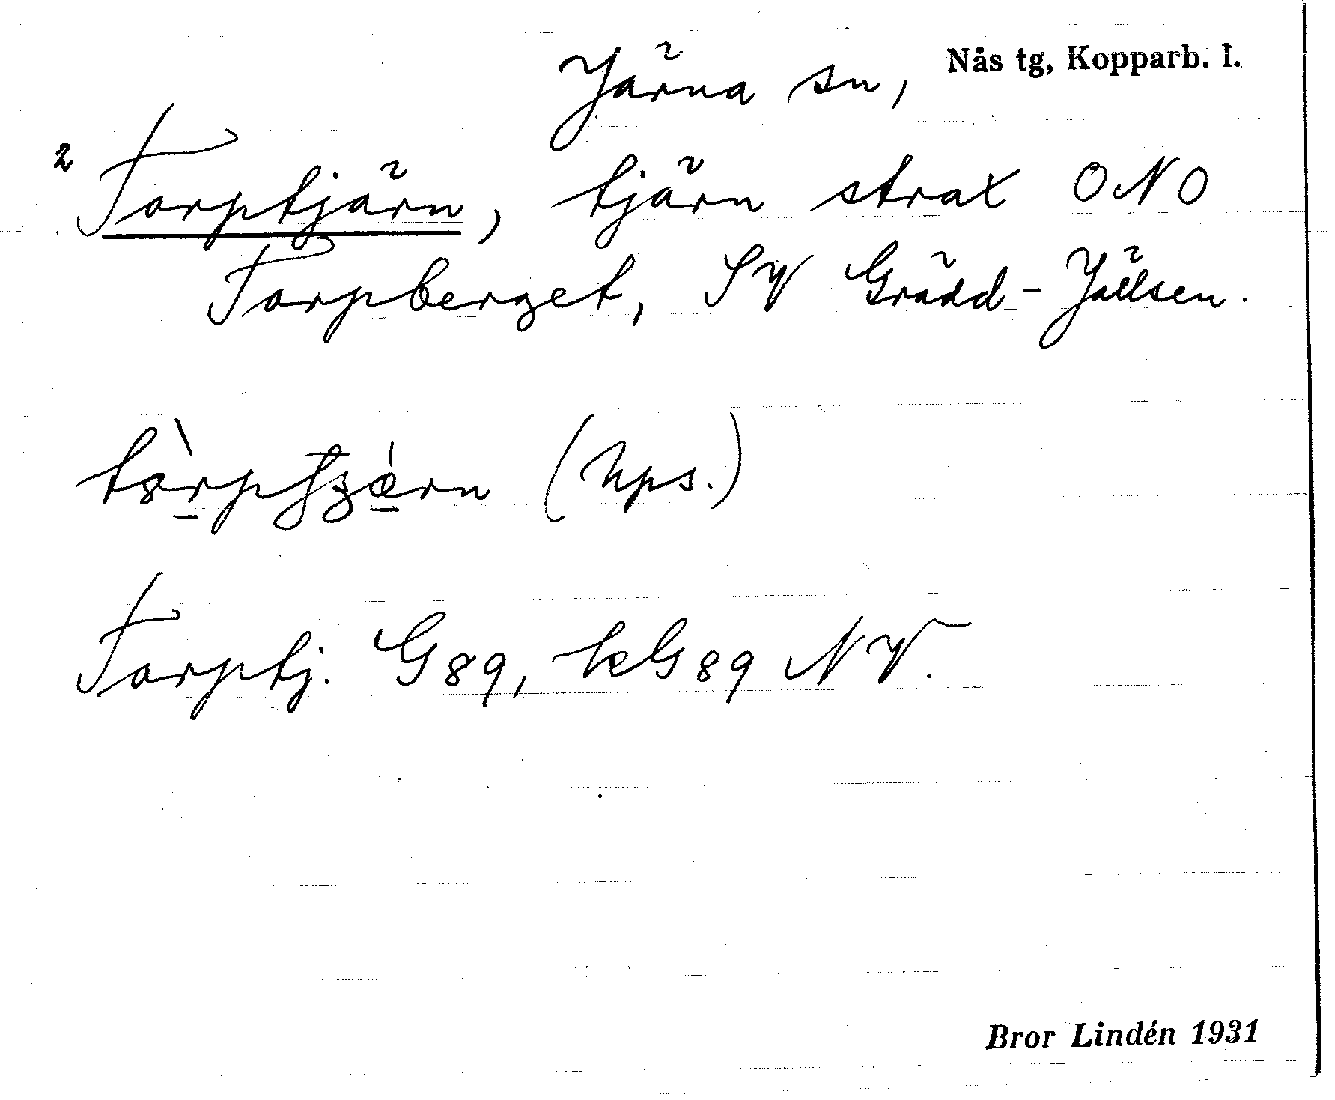 Järna sn, Nås tg, Kopparb. l.
2 Torptjärn, tjärn strax ONO
Torpberget, SV Grädd-Jälsen.
(Nps.)
Torptj. G89, kG89 NV.
Bror Lindén 1931